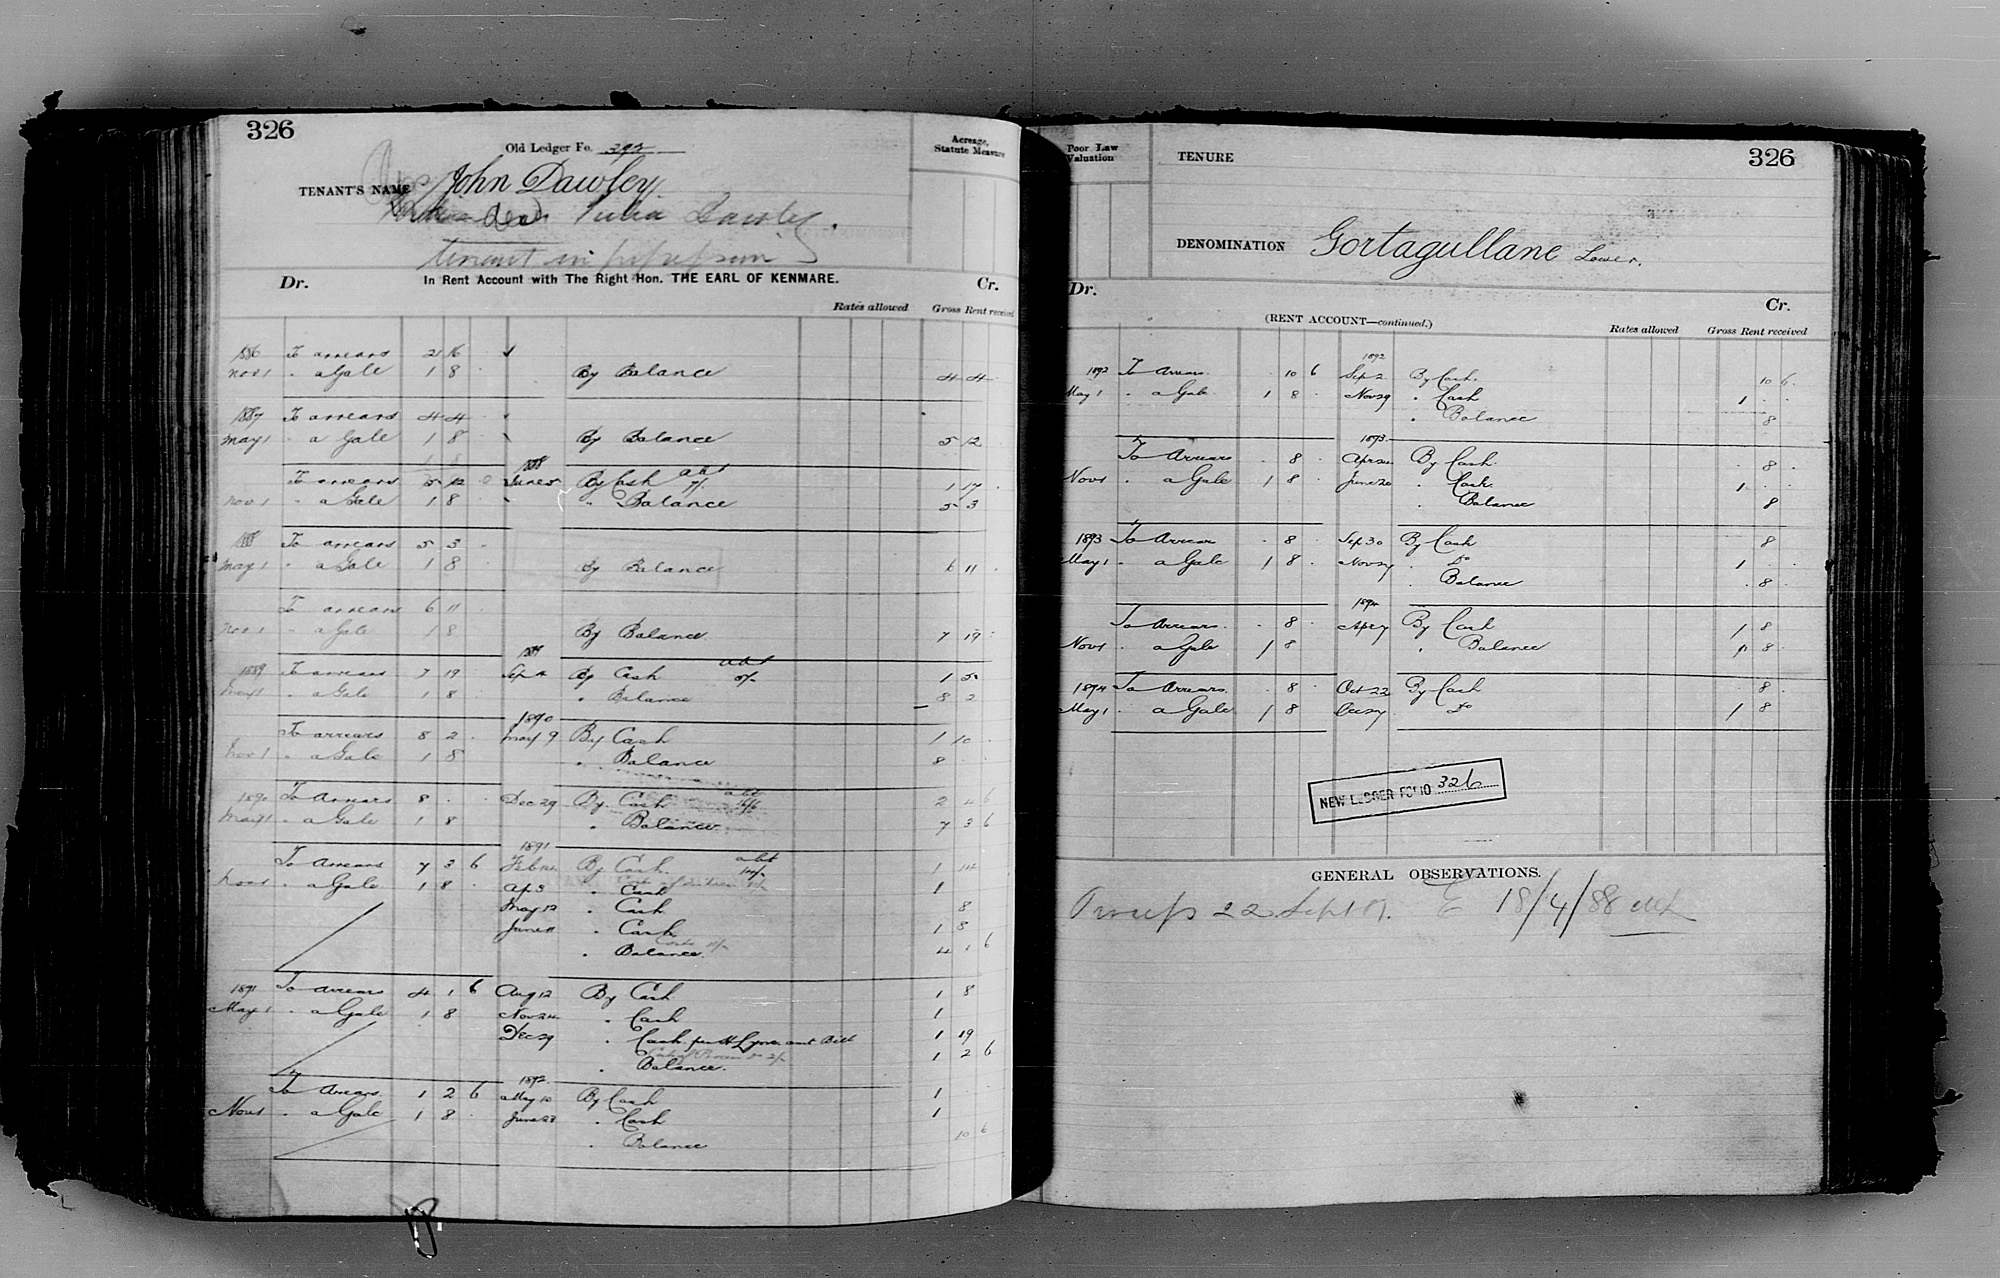 326
Old Ledger Fo. 392
Acreage, Statute Measure
TENANT'S NAME John Dawley
dead Julia Dawley.
tenant in
Dr. In Rent Account with The Right Hon. THE EARL OF KENMARE. Cr.
Rates allowed Gross Rent received
1886 To arrears 2 16
Nov 1 " a Gale 1 8 By Balance 4 4
1887 To arrears 4 4
May 1 " a Gale 1 8 By Balance 5 12
1 8 1888
To arrears 5 12 0 June 5 By Cash abt 7/. 1 17
Nov 1 " a Gale 1 8 " Balance 5 3
1888 To arrears 5 3
May 1 " a Gale 1 8 By Balance 6 11
To arrears 6 11
Nov 1 " a Gale 1 8 By Balance 7 19
1889
1889 To arrears 7 19 Sep 4 By Cash abt 5/- 1 5
May 1 " a Gale 1 8 " Balance 8 2
1890
To arrears 8 2 May 9 By Cash 1 10
Nov 1 " a Gale 1 8 " Balance 8
1890 To Arrears 8 Dec 29 By Cash abt 16/6 2 4 6
May 1 " a Gale 1 8 " Balance 7 3 6
1891
To Arrears 7 3 6 Feb By Cash abt 14/- 1 14
Nov 1 " a Gale 1 8 Ap 3 " Cash 1
May 12 " Cash 8
June 11 " Cash 1 8
" Balance 4 1 6
1891 To arrears 4 1 6 Aug 12 By Cash 1 8
May 1 " a Gale 1 8 Nov 24 " Cash 1
Dec 29 " Cash per H Lyne amt Bill 1 19
" Balance. 1 2 6
1892
To Arrears 1 2 6 May 10 By Cash 1
Nov 1 " a Gale 1 8 June 28 " Cash 1
" Balance 10 6
Poor Law Valuation
TENURE
326
DENOMINATION Gortagullane Lower.
Dr. Cr.
(RENT ACCOUNT—continued.)
Rates allowed Gross Rent received
1892
1892 To Arrears. 10 6 Sep 2 By Cash. 10 6
May 1 " a Gale 1 8 Nov 29 " Cash 1
" Balance 8
1893
To Arrears 8 Apr 24 By Cash. 8
Nov 1 " a Gale 1 8 June 20 " Cash. 1
" Balance 8
1893 To Arrears 8 Sep 30 By Cash 8
May 1 " a Gale 1 8 Nov 27 " Do 1
" Balance 8
1894
To Arrears. 8 Ap 27 By Cash 1 8
Nov 1 " a Gale 1 8 " Balance 8
1894 To Arrears. 8 Oct 22 By Cash 8
May 1 " a Gale 1 8 Dec 27 " Do 1 8
NEW LEDGER FOLIO 326
GENERAL OBSERVATIONS.
22 Sept 87. E 18/4/88